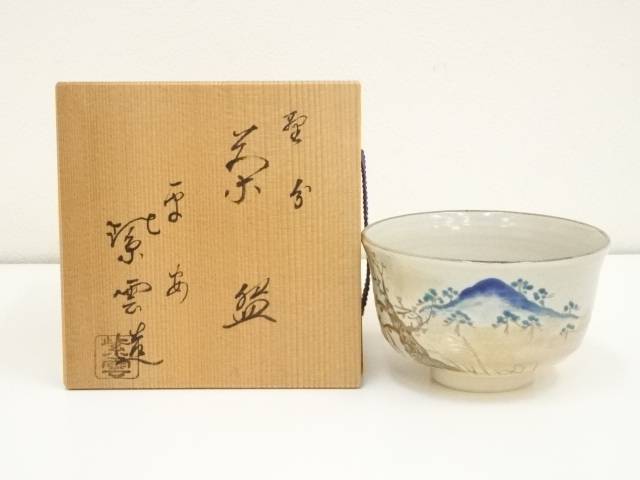 野分
茶盌
平安
紫雲造
紫雲